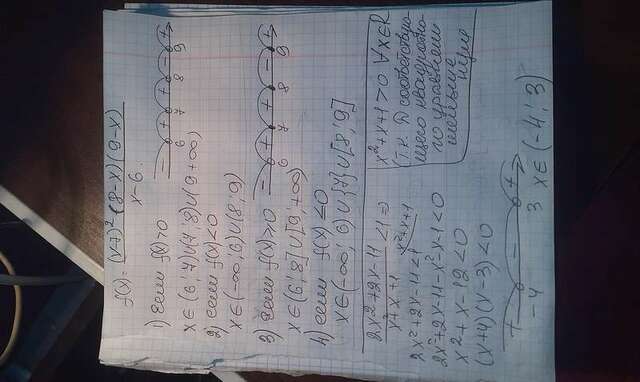 f(x) = (x-7)²(8-x)(9-x)
x-6
1) если f(x)>0
x∈(6;7)∪(7;8)∪(9+∞)
- + + - +
6 7 8 9
2) если f(x)<0
x∈(-∞;6)∪(8;9)
3) если f(x)≥0
x∈(6;8]∪[9;+∞)
- + + - +
6 7 8 9
4) если f(x)≤0
x∈(-∞;6)∪[7]∪[8;9]
2x²+2x-11 <1 ⇒
x²+x+1
x²+x+1>0 ∀x∈R
(т.к. D соответствую-
щего квадратно-
го уравнения
меньше
нуля
2x²+2x-11<x²+x+1
2x²+2x-11-x²-x-1<0
x²+x-12<0
(x+4)(x-3)<0
+ - +
-4 3 x∈(-4;3)